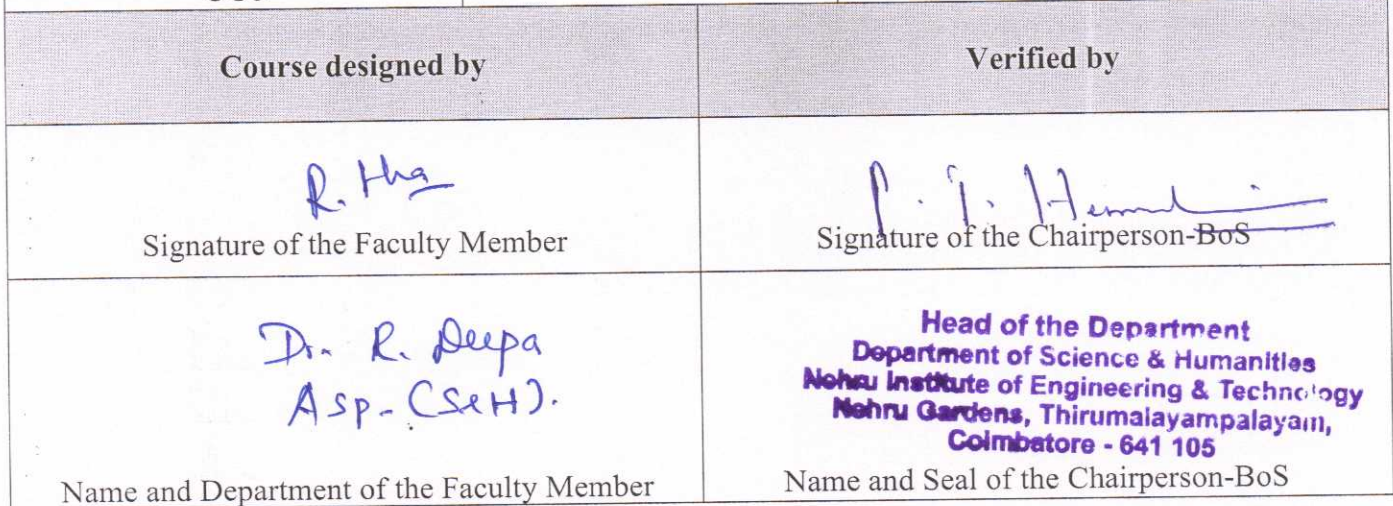 Course designed by
Verified by
R.
Signature of the Faculty Member
Signature of the Chairperson-BoS
Dr. R. Deepa
Asp- (S&H).
Name and Department of the Faculty Member
Head of the Department
Department of Science & Humanities
Nehru Institute of Engineering & Technology
Nehru Gardens, Thirumalayampalayam,
Coimbatore - 641 105
Name and Seal of the Chairperson-BoS